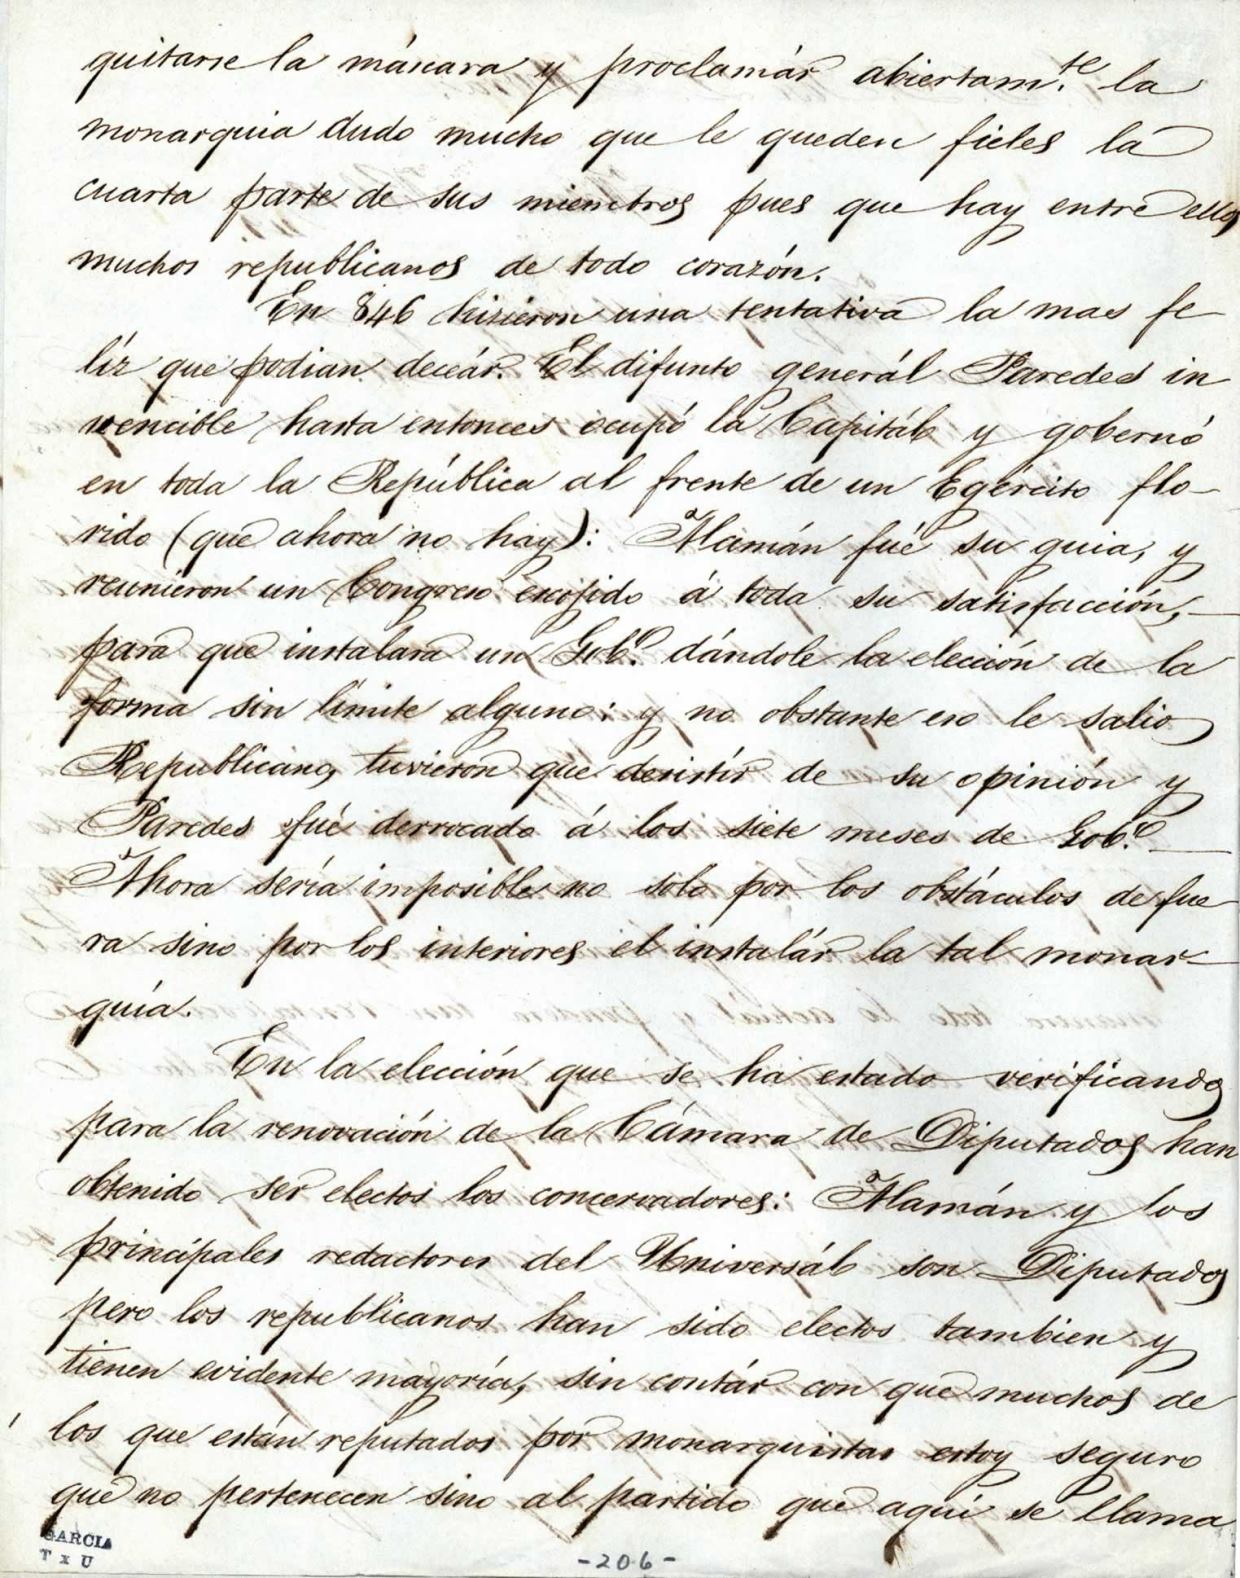 quitarse la máscara y proclamár abiertam.te la
monarquia dudo mucho que le queden fieles la
cuarta parte de sus miembros pues que hay entre ellos
muchos republicanos de todo corazón.
En 846 hizieron una tentativa la mas fe
líz que podian deceár. El difunto generál Paredes in
vencible hasta entonces ocupó la Capitál y gobernó
en toda la República al frente de un Egército flo-
rido (que ahora no hay): Alamán fué su guia, y
reunieron un Congreso escojido á toda su satisfacción,
para que instalara un Gob.o dándole la elección de la
forma sin límite alguno: y no obstante eso le salio
Republicano, tuvieron que desistír de su opinión y
Paredes fué derrocado á los siete meses de Gob.o
Ahora sería imposible no solo por los obstáculos de fue
ra sino por los interiores el instalár la tal monar-
quía.
En la elección que se ha estado verificando
para la renovación de la Cámara de Diputados han
obtenido ser electos los concervadores: Alamán y los
príncipales redactores del Universál son Diputados
pero los republicanos han sido electos tambien y
tienen evidente mayoría, sin contár con que muchos de
los que están reputados por monarquistas estoy seguro
que no pertenecen sino al partido que aquí se llama
GARCIA
T x U
-206-